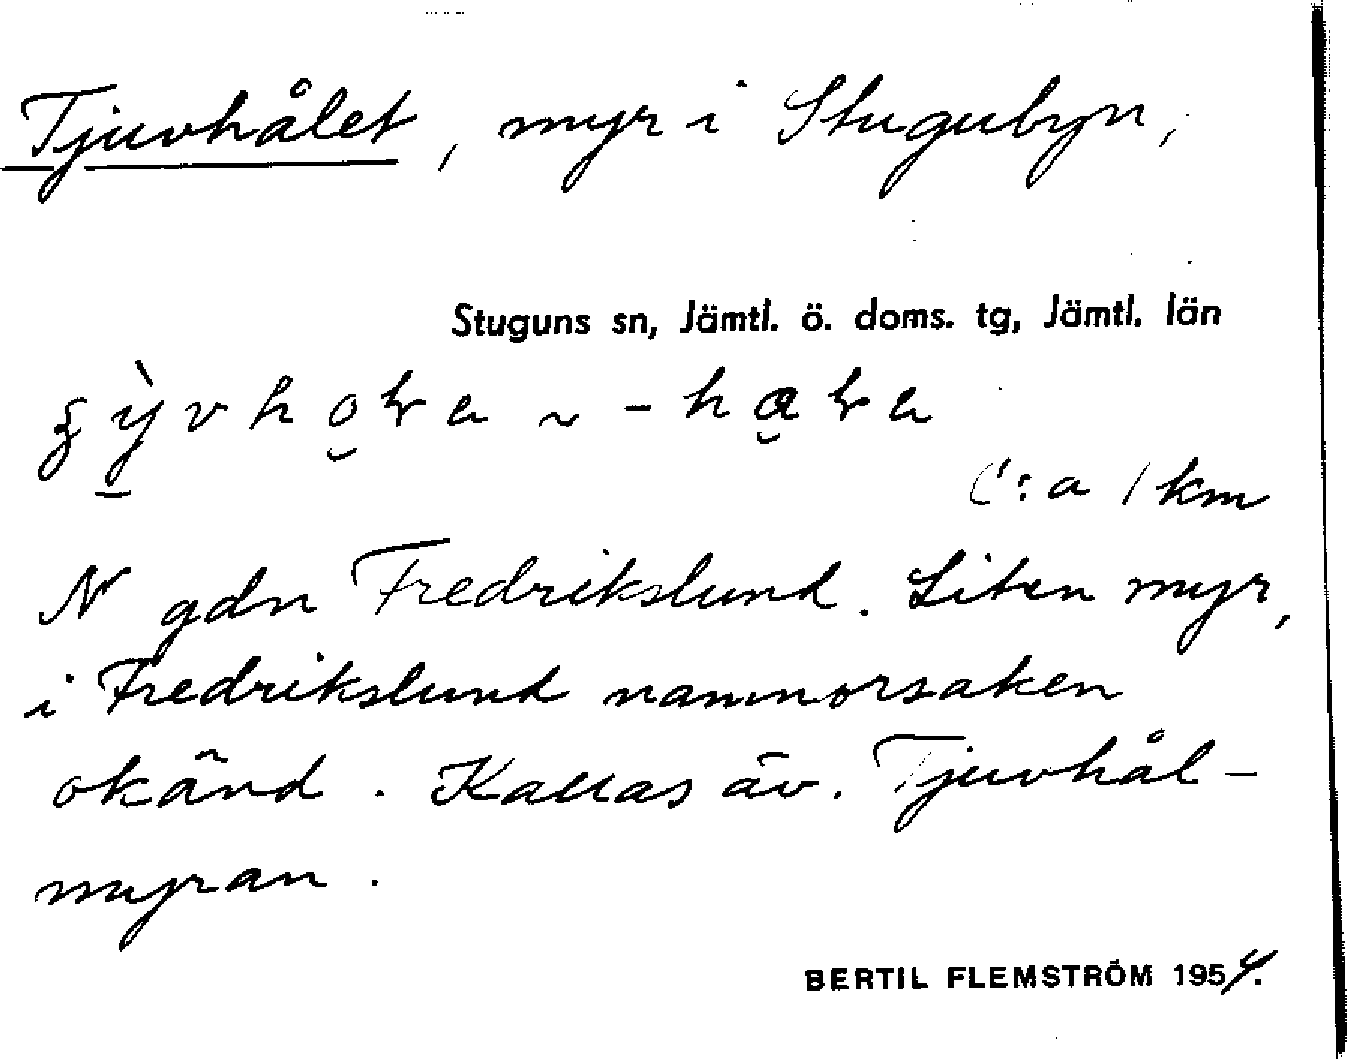 Tjuvhålet, myr i Stugubyn,
Stuguns sn, Jämtl. ö. doms. tg, Jämtl. län
C:a 1 km
N gdn Fredrikslund. Liten myr,
i Fredrikslund namnorsaken
okänd. Kallas äv. Tjuvhål-
myran.
BERTIL FLEMSTRÖM 1954.